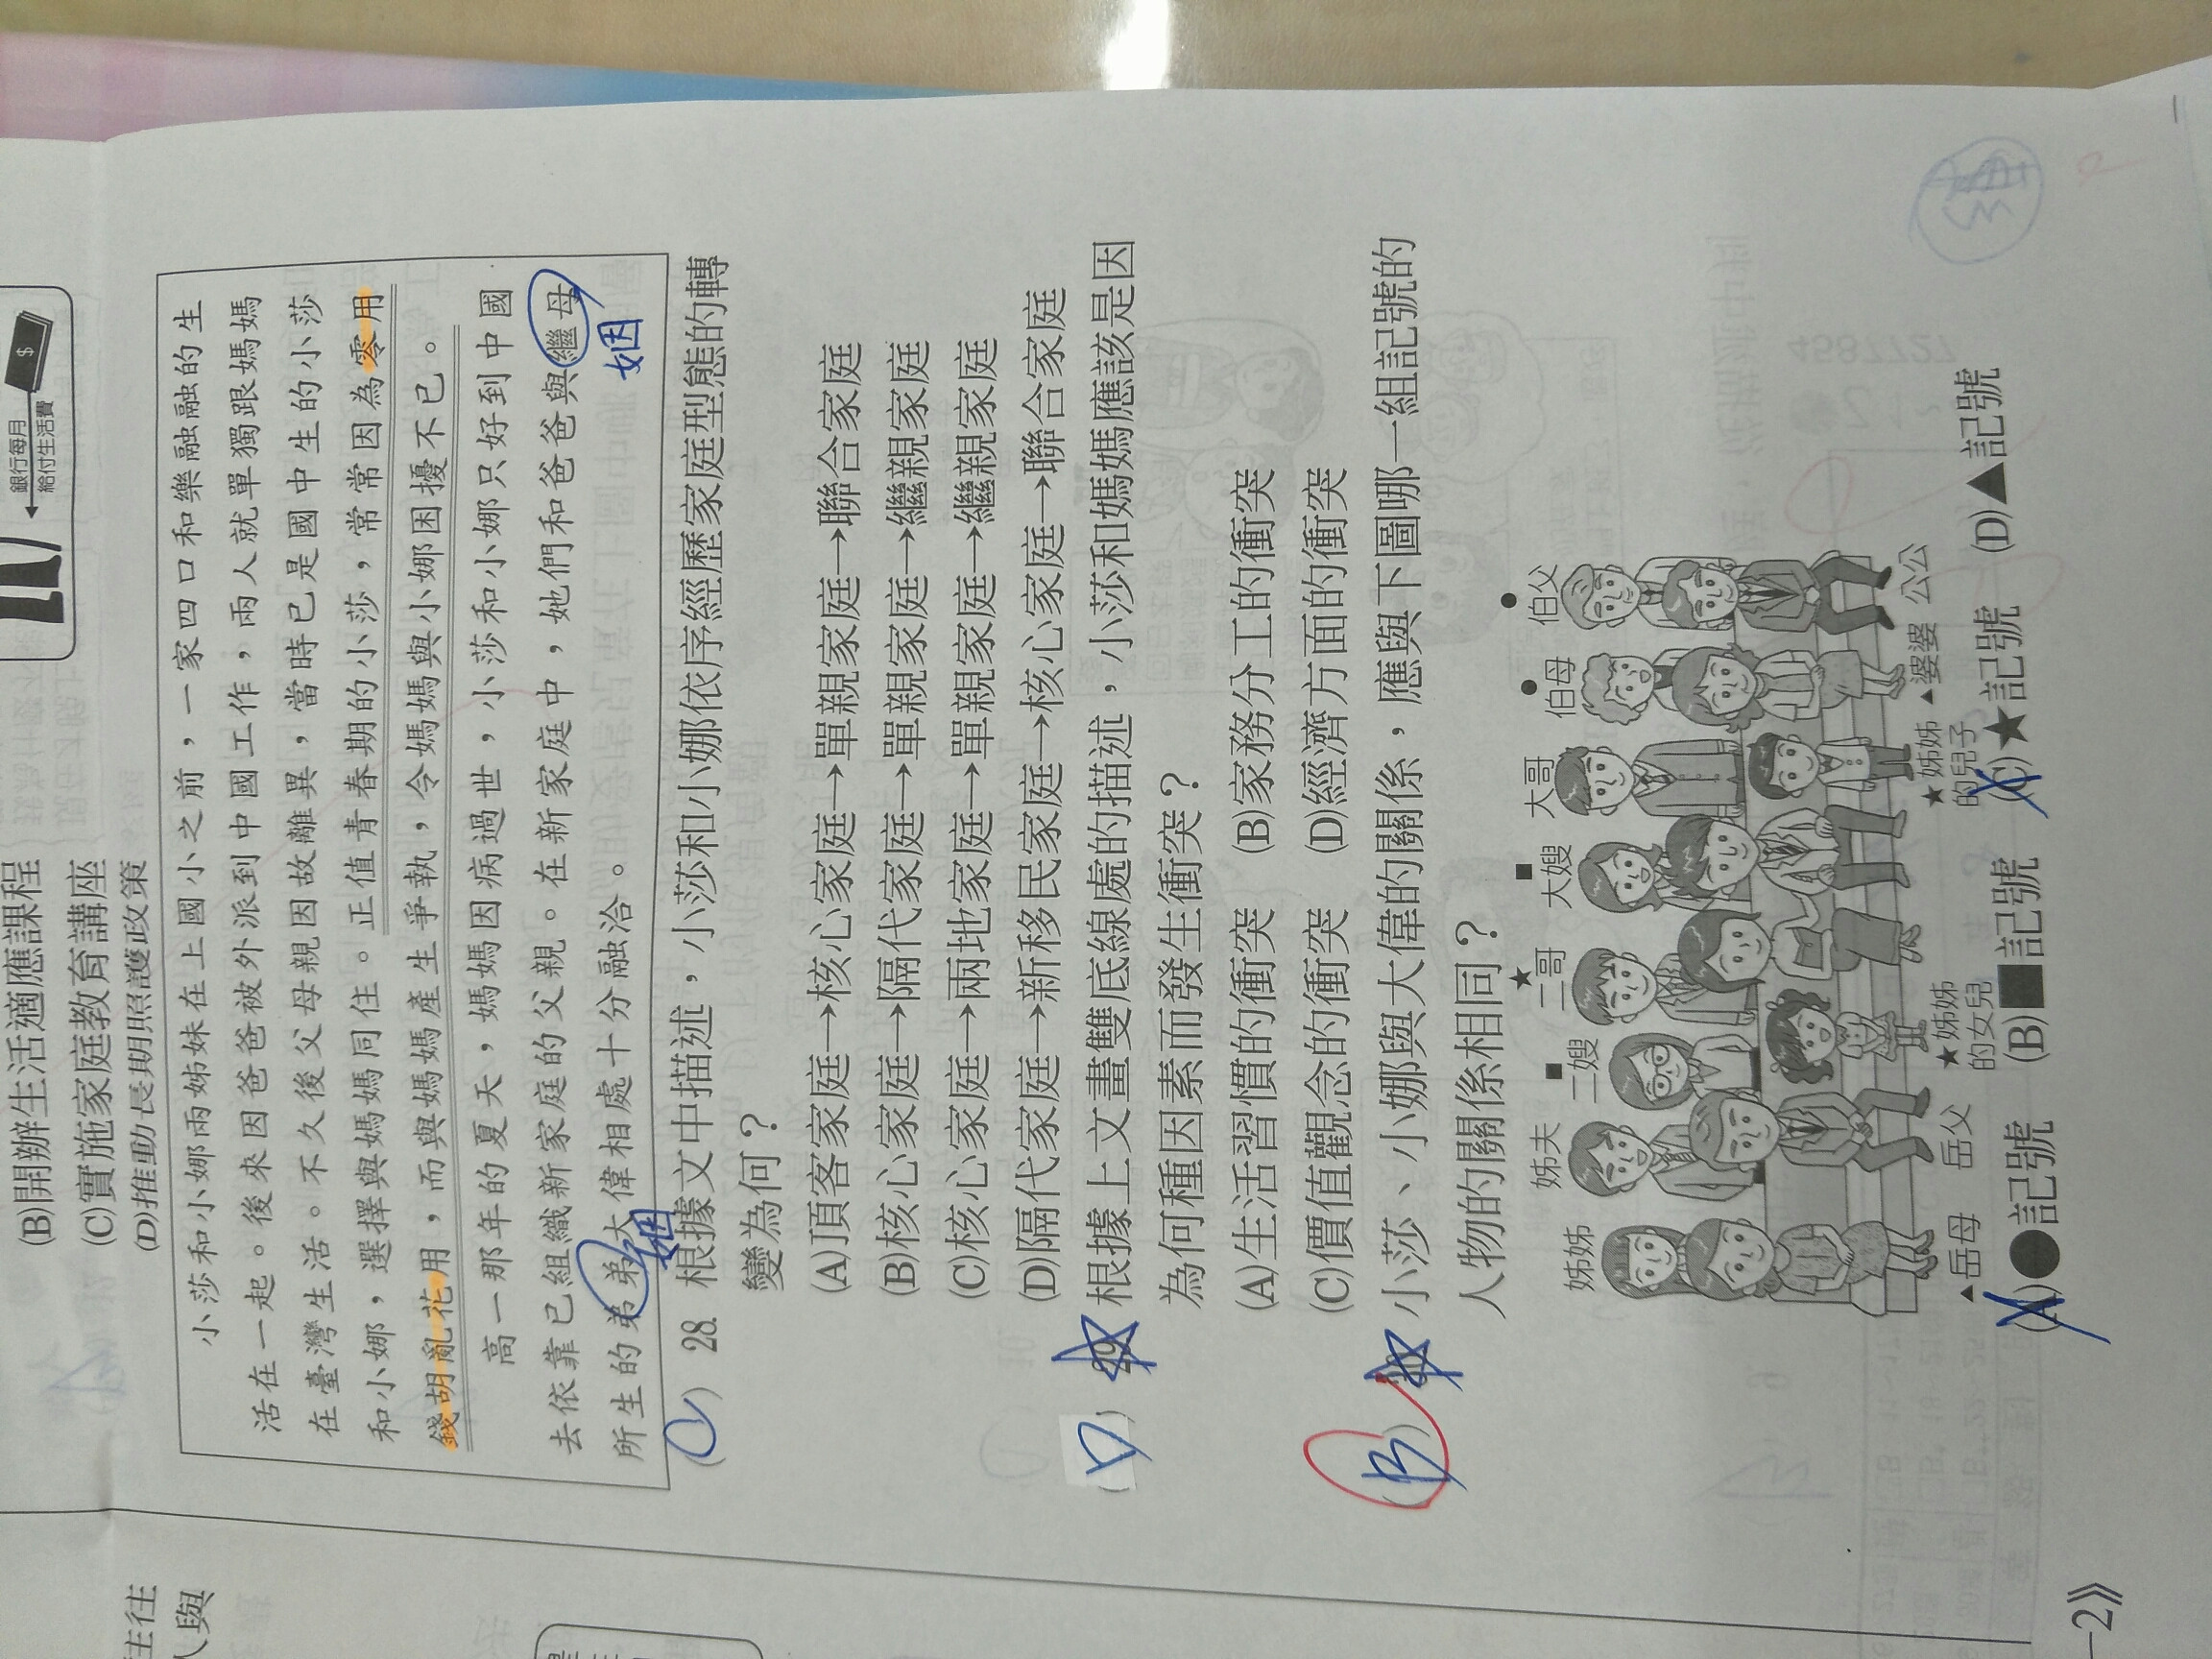 銀行每月
給付生活費
$
(B)開辦生活適應課程
(C)實施家庭教育講座
(D)推動長期照護政策
小莎和小娜兩姊妹在上國小之前，一家四口和樂融融的生
活在一起。後來因爸爸被外派到中國工作，兩人就單獨跟媽媽
在臺灣生活。不久後父母親因故離異，當時已是國中生的小莎
和小娜，選擇與媽媽同住。正值青春期的小莎，常常因為零用
錢胡亂花用，而與媽媽產生爭執，令媽媽與小娜困擾不已。
高一那年的夏天，媽媽因病過世，小莎和小娜只好到中國
去依靠已組織新家庭的父親。在新家庭中，她們和爸爸與繼母
姻
所生的弟弟大偉相處十分融洽。
姻
( C ) 28. 根據文中描述，小莎和小娜依序經歷家庭型態的轉
變為何？
(A)頂客家庭→核心家庭→單親家庭→聯合家庭
(B)核心家庭→隔代家庭→單親家庭→繼親家庭
(C)核心家庭→兩地家庭→單親家庭→繼親家庭
(D)隔代家庭→新移民家庭→核心家庭→聯合家庭
( D ) 29. 根據上文畫雙底線處的描述，小莎和媽媽應該是因
為何種因素而發生衝突？
(A)生活習慣的衝突 (B)家務分工的衝突
(C)價值觀念的衝突 (D)經濟方面的衝突
( B ) 小莎、小娜與大偉的關係，應與下圖哪一組記號的
人物的關係相同？
姊姊 姊夫 ■二嫂 ★二哥 ■大嫂 大哥 ●伯母 ●伯父
▲岳母 岳父 ★姊姊的女兒 ★姊姊的兒子 ▲婆婆 公公
(A)●記號 (B)■記號 (C)★記號 (D)▲記號
主往
人與
—2》
4587727